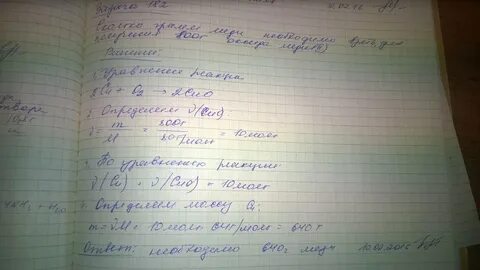 Задача №2
Сколько грамм меди необходимо взять для
получения 800г оксида меди(II)
Решение:
1. Уравнение реакции
2Cu + O₂ → 2CuO
2. Определяем ν(CuO):
ν = m / M = 800г / 80г/моль = 10моль
3. По уравнению реакции
ν(Cu) = ν(CuO) = 10моль
Определяем массу Cu:
m = νM = 10моль · 64г/моль = 640г
Ответ: необходимо 640г меди